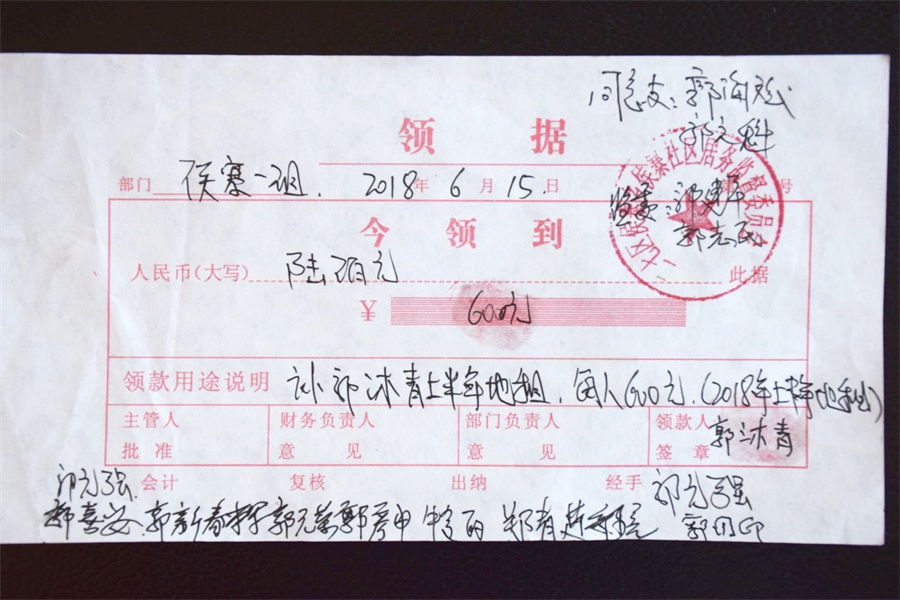 同意支：郭海彪
郭文科
领 据
部门 侯寨一组. 2018年 6月 15日 号
侯寨社区居务监督委员会
郭志民
今 领 到
人民币(大写) 陆佰元 此据
¥ 600元
领款用途说明 补郭沐青上半年地租，每人600元.(2018年上半年地租)
主管人 财务负责人 部门负责人 领款人 郭沐青
批 准 意 见 意 见 签 章
会计 复核 出纳 经手 郭元强
郭元强
郭喜安